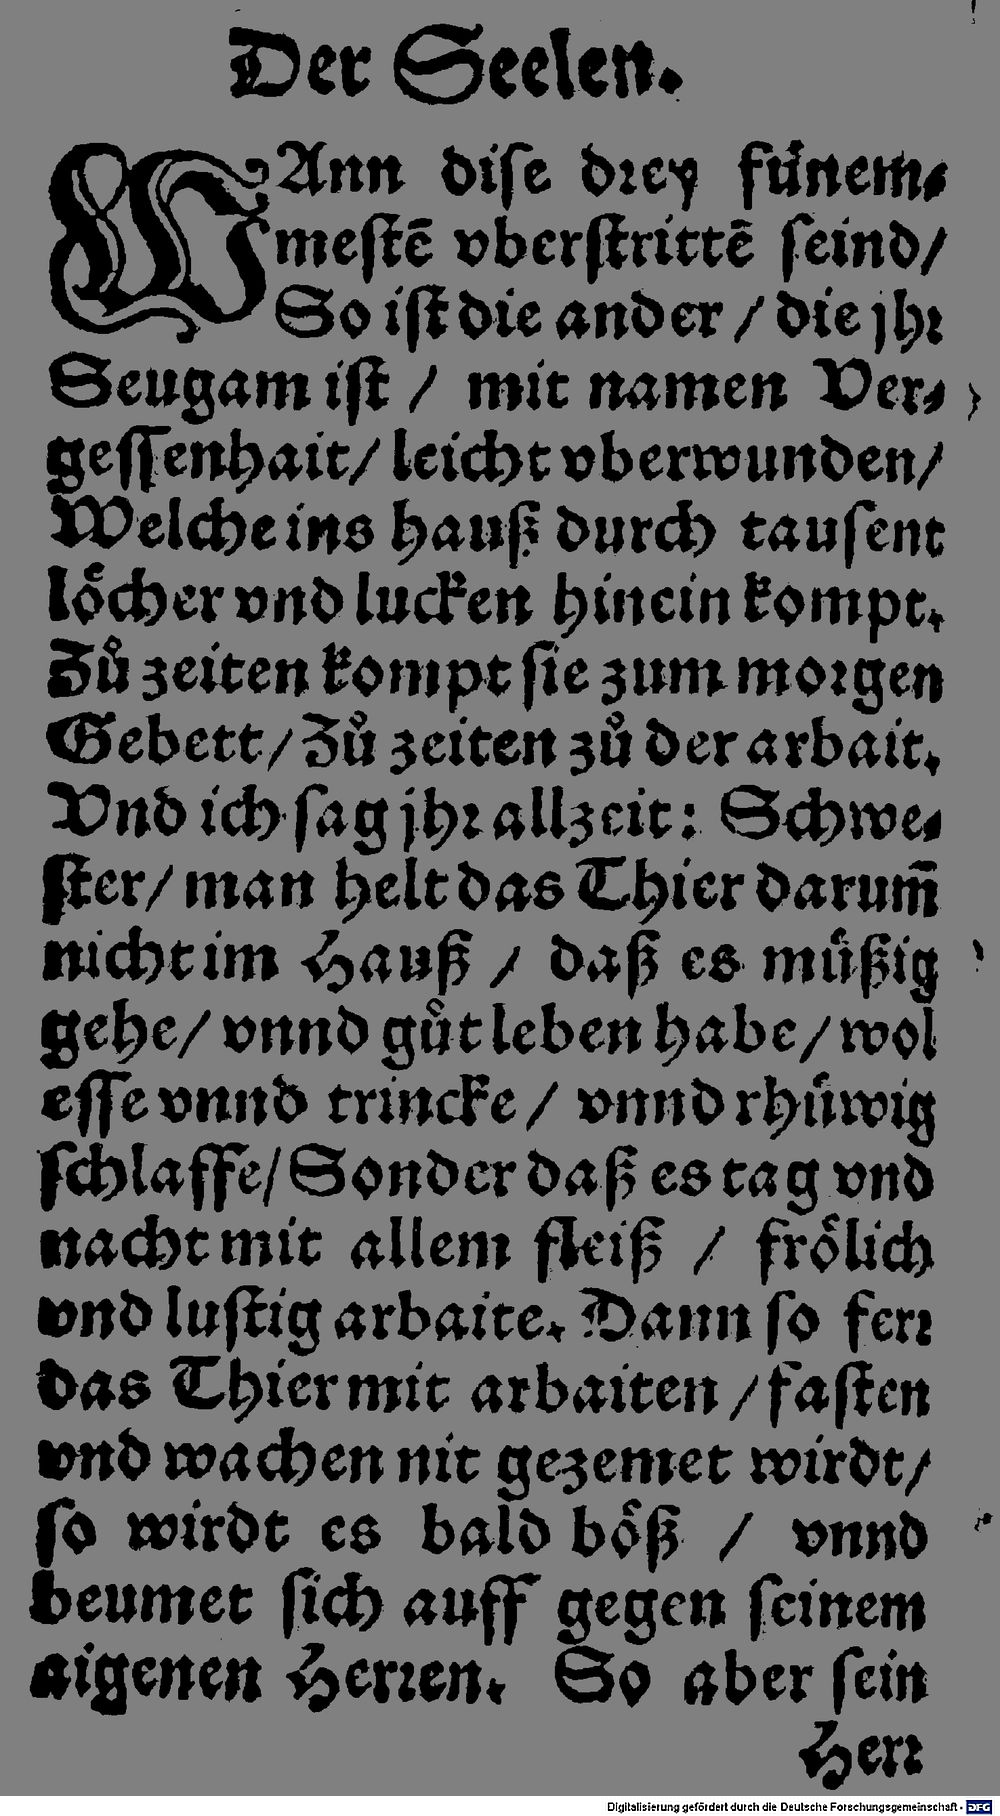 Der Seelen.
WAnn dise drey fürnem-
mestē vberstrittē seind/
So ist die ander / die jhr
Seugam ist / mit namen Ver-
gessenhait/ leicht vberwunden/
Welche ins hauß durch tausent
loͤcher vnd lucken hinein kompt.
Zů zeiten kompt sie zum morgen
Gebett/ Zů zeiten zů der arbait.
Vnd ich sag jhr allzeit: Schwe-
ster/ man helt das Thier darum̄
nicht im Hauß / daß es muͤßig
gehe/ vnnd gůt leben habe/ wol
esse vnnd trincke / vnnd rhuͤwig
schlaffe/ Sonder daß es tag vnd
nacht mit allem fleiß / froͤlich
vnd lustig arbaite. Dann so ferr
das Thier mit arbaiten / fasten
vnd wachen nit gezemet wirdt/
so wirdt es bald boͤß / vnnd
beumet sich auff gegen seinem
aigenen Herren. So aber sein
Herr
Digitalisierung gefördert durch die Deutsche Forschungsgemeinschaft - DFG